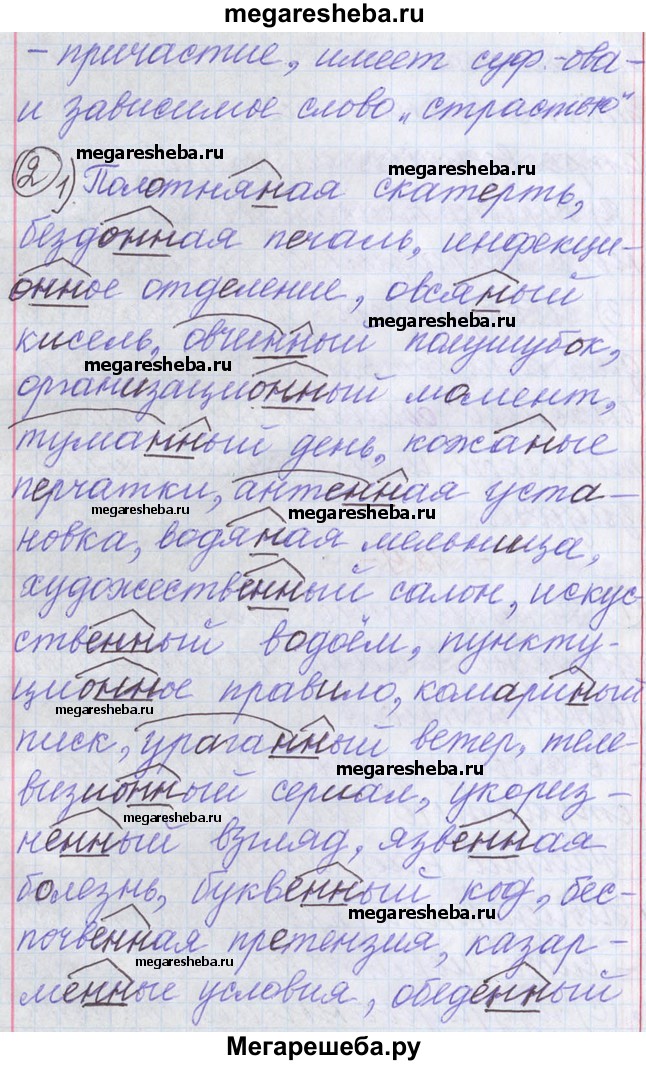 megaresheba.ru
- причастие, имеет суф. -ова-
и зависимое слово „страстью"
megaresheba.ru
megaresheba.ru
② 1) Полотняная скатерть,
бездонная печаль, инфекци-
онное отделение, овсяный
megaresheba.ru
кисель, овчинный полушубок,
megaresheba.ru
организационный момент,
туманный день, кожаные
перчатки, антенная уста-
megaresheba.ru
megaresheba.ru
новка, водяная мельница,
художественный салон, искус-
ственный водоём, пункту-
ционное правило, комариный
megaresheba.ru
писк, ураганный ветер, теле-
megaresheba.ru
визионный сериал, укориз-
megaresheba.ru
ненный взгляд, язвенная
болезнь, буквенный код, бес-
megaresheba.ru
почвенная претензия, казар-
megaresheba.ru
менные условия, обеденный
Мегарешеба.ру